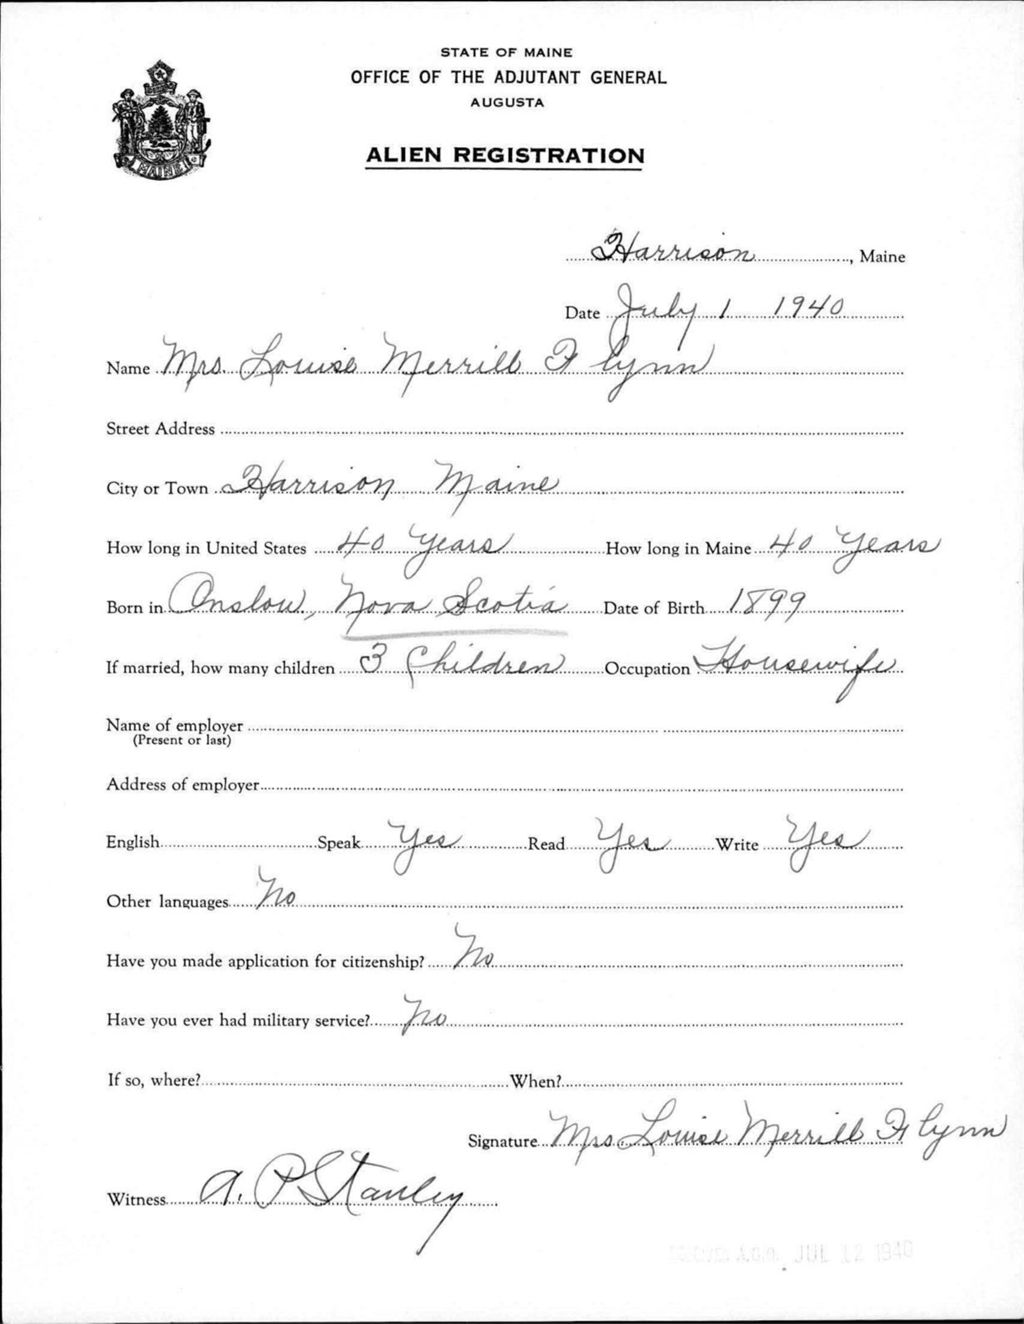 STATE OF MAINE
OFFICE OF THE ADJUTANT GENERAL
AUGUSTA
ALIEN REGISTRATION
MAINE
Harrison, Maine
Date July 1 1940
Name Mrs. Louise Merrill Flynn
Street Address
City or Town Harrison Maine
How long in United States 40 Years How long in Maine 40 Years
Born in Onslow, Nova Scotia Date of Birth 1899
If married, how many children 3 Children Occupation Housewife
Name of employer
(Present or last)
Address of employer
English Speak Yes Read Yes Write Yes
Other languages No
Have you made application for citizenship? No
Have you ever had military service? No
If so, where? When?
Signature Mrs. Louise Merrill Flynn
Witness A. P. Stanley
A.G.O. JUL 12 1940